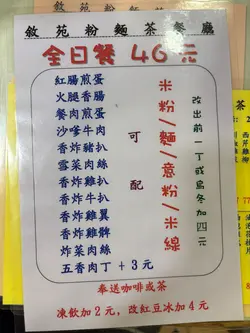 敘苑粉麵茶餐廳
全日餐 46元
紅腸煎蛋
火腿香腸
餐肉煎蛋
沙嗲牛肉
香炸豬扒
雪菜肉絲
香炸雞扒
香炸牛扒
香炸雞翼
香炸雞髀
炸菜肉絲
五香肉丁 +3元
可配
米粉/麵/薏粉/米線
改出前一丁或烏冬加四元
奉送咖啡或茶
凍飲加2元,改紅豆冰加4元
茶